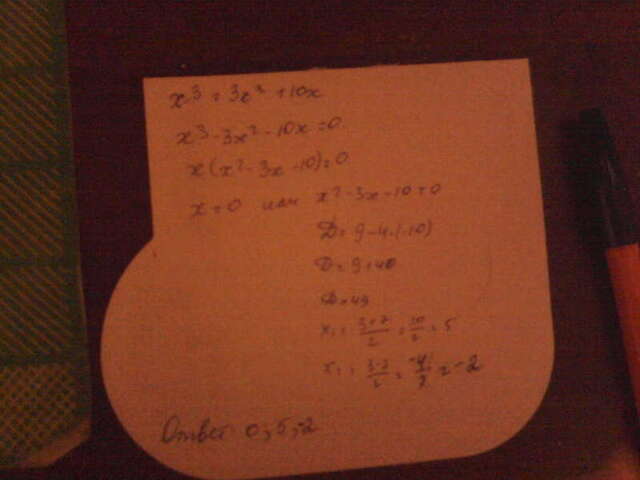 x³ = 3x² + 10x
x³ - 3x² - 10x = 0
x(x² - 3x - 10) = 0
x = 0 или x² - 3x - 10 = 0
D = 9 - 4·(-10)
D = 9 + 40
D = 49
x₁ = \frac{3+7}{2} = \frac{10}{2} = 5
x₁ = \frac{3-7}{2} = \frac{-4}{2} = -2
Ответ 0; 5; -2